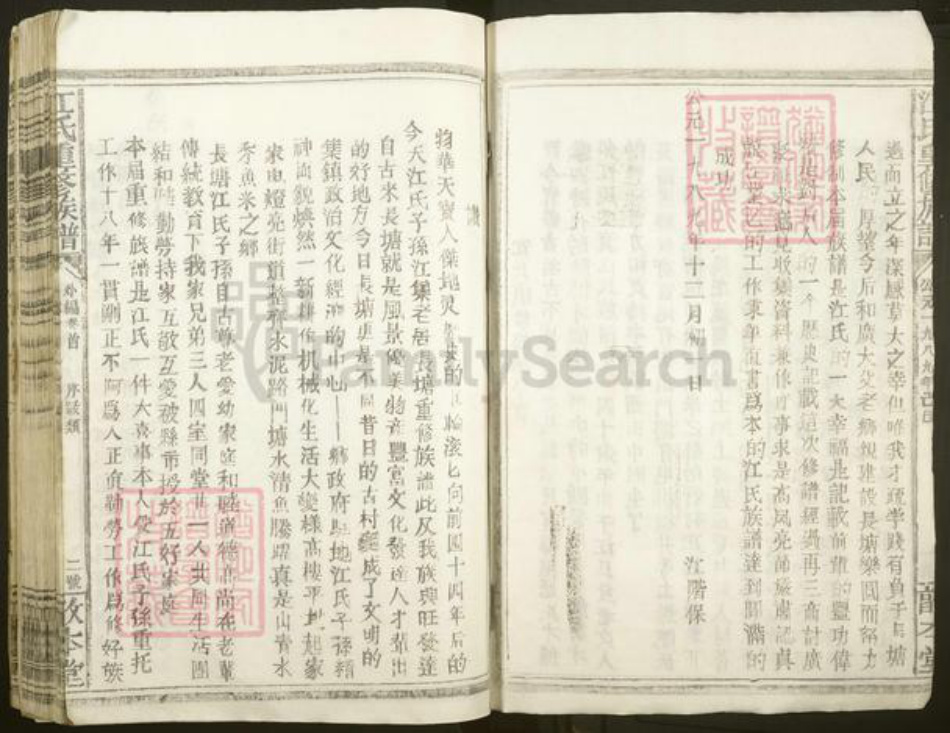 江氏重修族譜
公元一九八九年己巳
敦本堂
過而立之年深感莫大之幸但唯我才疏学践有負于長塘
人民 厚望今后和廣大父老鄉親建設長塘樂園而努力
修制本届族譜是江氏的一大幸福是記載前輩的豐功偉
的一个歷史記載這次修譜經過再三商討廣
收集資料兼作 事求是高风亮節嚴肅認真
的工作秉筆直書爲本的江氏族譜達到圓滿的
成功
公元一九八九年十二月初一日 江階保
物華天寶人傑地灵 的 輪滚匕向前四十四年后的
今天江氏子孫江集老居長塘重修族譜此及我族理旺發達
自古米長塘就是風景優美物産豐富文化發達人才輩出
的好地方今日長塘更是不同昔日的古村 成了文明的
集鎮政治文化經濟的中心——鄉政府駐地江氏子孫精
神面貌焕然一新耕作机械化生活大變樣高樓平地起家
家电燈亮街道整齐水泥路面塘水清魚騰躍真是山青水
秀魚米之鄉
長塘江氏子孫自古尊老愛幼家庭和睦道德高尚在老輩
傳統教育下我家兄弟三人四室同堂廿一人共同生活團
結和睦勤勞持家互敬互愛被縣市授於五好家庭
本届重修族譜是江氏一件大喜事本人受江氏子孫重托
工作十八年一貫剛正不阿爲人正直勤勞工作爲修好族
江氏重修族譜
外編卷首 序跋類
二號
敦本堂